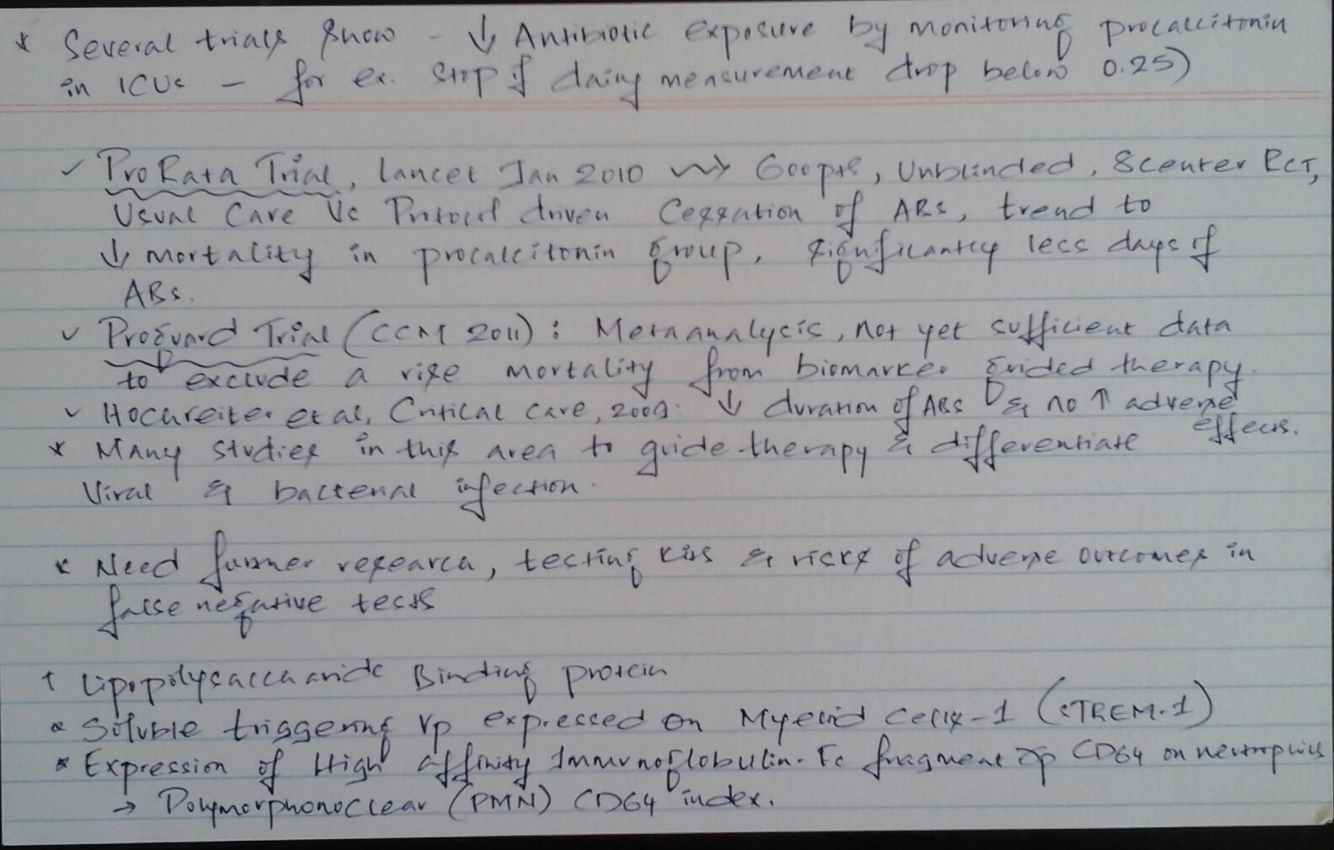 * Several trials show - ↓ Antibiotic exposure by monitoring procalcitonin
in ICUs - for ex. stop if daily measurement drop below 0.25)
✓ ProRata Trial, Lancet Jan 2010 ⇝ 600pts, Unblinded, 8center RCT,
Usual Care Vs Protocol driven Cessation of ABs, trend to
↓ mortality in procalcitonin group, significantly less days of
ABs.
✓ Proguard Trial (CCM 2011) : Metaanalysis, not yet sufficient data
to exclude a rise mortality from biomarker guided therapy.
✓ Hochreiter et al, Critical Care, 2009: ↓ duration of ABs & no ↑ adverse
effects.
* Many studies in this area to guide therapy & differentiate
Viral & bacterial infection.
* Need further research, testing kits & risks of adverse outcomes in
false negative tests
* Lipopolysaccharide Binding protein
* Soluble triggering rp expressed on Myeloid Cells-1 (sTREM-1)
* Expression of High affinity Immunoglobulin-Fc fragment rp CD64 on neutrophils
→ Polymorphonuclear (PMN) CD64 index.